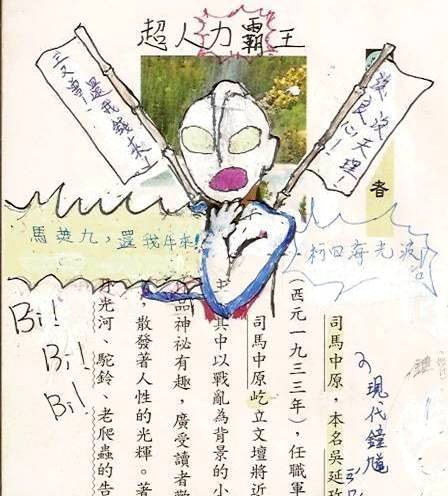 超人力霸王
還我錢來!
良心!!
天理!
春
馬英九,還我牛來!
光波
Bi!
Bi!
Bi!
現代鍾馗
司馬中原,本名吳延玫
(西元一九三三年),任職軍
司馬中原屹立文壇將近
其中以戰亂為背景的小
品神祕有趣,廣受讀者
散發著人性的光輝。著
光河、駝鈴、老爬蟲的告